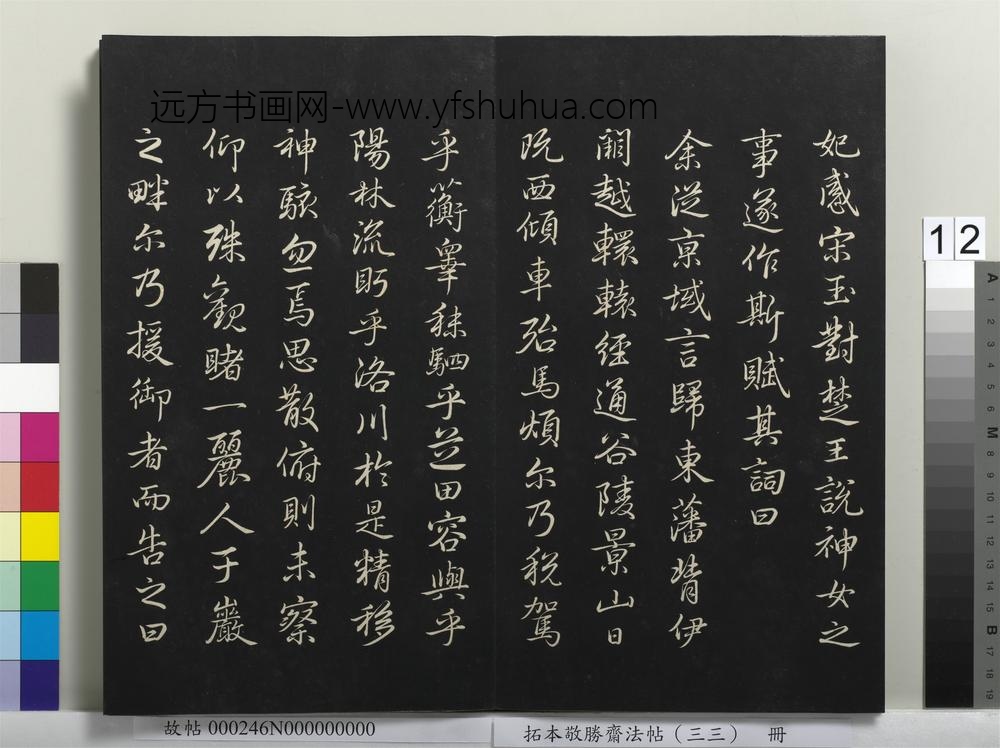 远方书画网-www.yfshuhua.com
妃感宋玉對楚王說神女之
事遂作斯賦其詞曰
余從京域言歸東藩背伊
闕越轘轅經通谷陵景山日
既西傾車殆馬煩尔乃稅駕
乎蘅皋秣駟乎芝田容與乎
陽林流眄乎洛川於是精移
神駭忽焉思散俯則未察
仰以殊觀睹一麗人于巖
之畔尔乃援御者而告之曰
12
A 1 2 3 4 5 6 M 8 9 10 11 12 13 14 15 B 17 18 19
故帖 000246N000000000
拓本敬勝齋法帖（三三） 冊